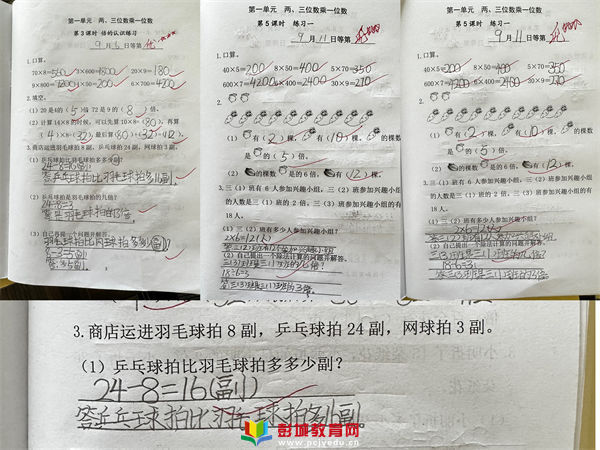 第一单元 两、三位数乘一位数
第 3 课时 倍的认识练习
9月6日等第
1.口算。
20×9=180
6×700=4200
2.填空。
(1) 20 是 4 的（5）倍 72 是 9 的（8）倍。
(2) 计算 14×8 的时候，可以先算 10×8=（80），再算
（4）×（8）=（32），最后算（80）+（32）=（112）。
3.商店运进羽毛球拍 8 副，乒乓球拍 24 副，网球拍 3 副。
(1) 乒乓球拍比羽毛球拍多多少副？
(2) 乒乓球拍是羽毛球拍的几倍？
24÷8=3
(3) 自己再提一个问题并解答。
第一单元 两、三位数乘一位数
第 5 课时 练习一
9月11日等第
1.口算。
40×5=200 8×50=400 5×70=350
600×7=4200 6×400=2400 30×9=270
2.
(1) 有（2）棵，有（10）棵，的棵数
是的（5）倍。
(2) 的棵数是的 6 倍，有（12）棵。
3.三（1）班有 6 人参加兴趣小组，三（2）班参加兴趣小组
的人数是三（1）班的 2 倍，三（3）班参加兴趣小组的有
18 人。
(1) 三（2）班有多少人参加兴趣小组？
2×6=12(人)
(2) 自己提出一个除法计算的问题并解答。
18÷6=3
第一单元 两、三位数乘一位数
第 5 课时 练习一
9月11日等第
1.口算。
40×5=200 8×50=400 5×70=350
600×7=4200 6×400=2400 30×9=270
2.
(1) 有（2）棵，有（10）棵，的棵数
是的（5）倍。
(2) 的棵数是的 6 倍，有（12）棵。
3.三（1）班有 6 人参加兴趣小组，三（2）班参加兴趣小组
的人数是三（1）班的 2 倍，三（3）班参加兴趣小组的有
18 人。
(1) 三（2）班有多少人参加兴趣小组？
(2) 自己提出一个除法计算的问题并解答。
18÷6=3
3.商店运进羽毛球拍 8 副，乒乓球拍 24 副，网球拍 3 副。
(1) 乒乓球拍比羽毛球拍多多少副？
24-8=16(副)
答:乒乓球拍比羽毛球拍多16副。
彭城教育网
www.pcjyedu.cn